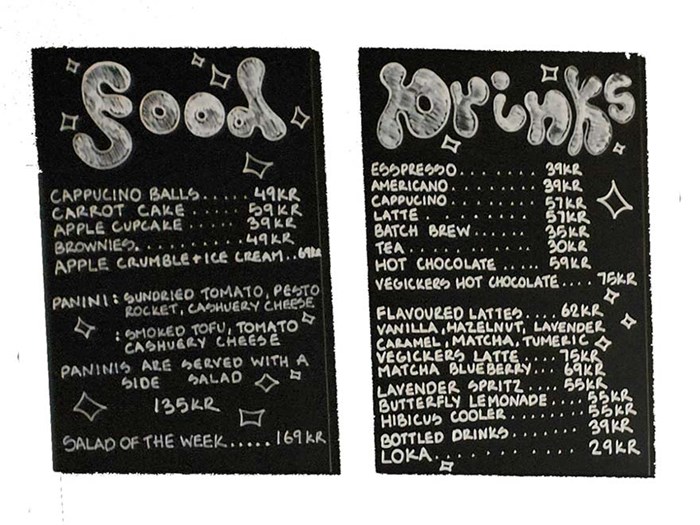 Food
CAPPUCINO BALLS..... 49KR
CARROT CAKE ..... 59KR
APPLE CUPCAKE ..... 39KR
BROWNIES.......... 49KR
APPLE CRUMBLE+ICE CREAM..69KR
PANINI: SUNDRIED TOMATO, PESTO
ROCKET, CASHUERY CHEESE
: SMOKED TOFU, TOMATO
CASHUERY CHEESE
PANINIS ARE SERVED WITH A
SIDE SALAD
135KR
SALAD OF THE WEEK..... 169KR
Drinks
ESSPRESSO....... 39KR
AMERICANO....... 39KR
CAPPUCINO ....... 57KR
LATTE .......... 57KR
BATCH BREW...... 35KR
TEA .......... 30KR
HOT CHOCOLATE ..... 59KR
VEGICKERS HOT CHOCOLATE.... 75KR
FLAVOURED LATTES .... 62KR
VANILLA, HAZELNUT, LAVENDER
CARAMEL, MATCHA, TUMERIC
VEGICKERS LATTE .... 75KR
MATCHA BLUEBERRY... 69KR
LAVENDER SPRITZ .... 55KR
BUTTERFLY LEMONADE.... 55KR
HIBICUS COOLER....... 55KR
BOTTLED DRINKS....... 39KR
LOKA............. 29KR